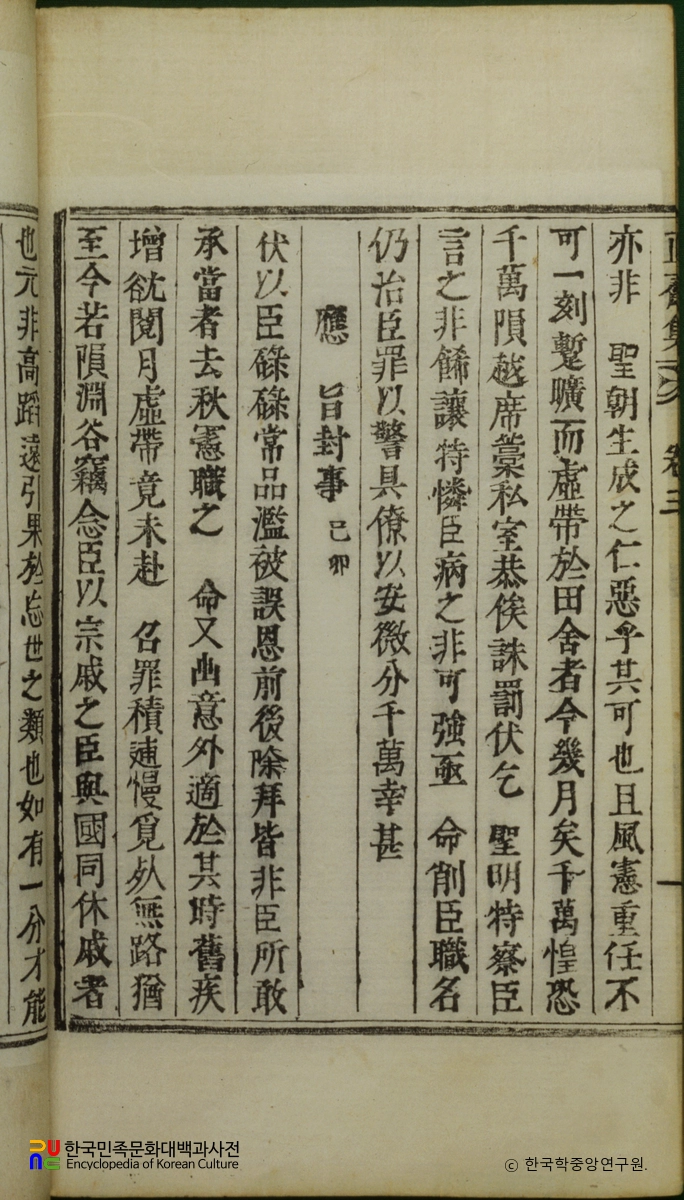 亦非 聖朝生成之仁惡乎其可也且風憲重任不
可一刻蹔曠而虛帶於田舍者今幾月矣千萬惶恐
千萬隕越席藁私室恭俟誅罰伏乞 聖明特察臣
言之非餙讓特憐臣病之非可強亟 命削臣職名
仍治臣罪以警具僚以安微分千萬幸甚
應 旨封事 己卯
伏以臣碌碌常品濫被誤恩前後除拜皆非臣所敢
承當者去秋憲職之 命又出意外適於其時舊疾
增欱閱月虛帶竟未赴 召罪積逋慢覓死無路猶
至今若隕淵谷竊念臣以宗戚之臣與國同休戚者
也元非高蹈遠引果於忘世之類也如有一分才能
한국민족문화대백과사전
Encyclopedia of Korean Culture
ⓒ 한국학중앙연구원.